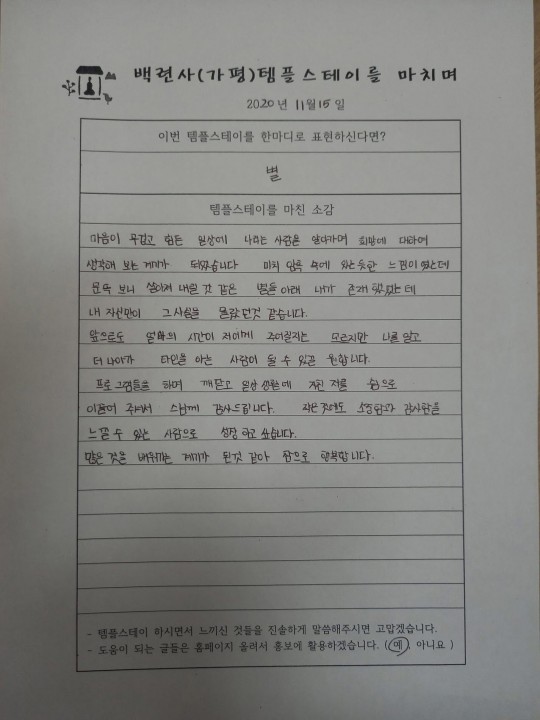 백련사(가평)템플스테이를 마치며
2020년 11월 15일
이번 템플스테이를 한마디로 표현하신다면?
별
템플스테이를 마친 소감
마음이 무겁고 힘든 일상에 나라는 사람을 알아가며 희망에 대하여
생각해 보는 계기가 되었습니다 마치 암흑 속에 있는듯한 느낌이 였는데
문득 보니 쏟아져 내릴 것 같은 별들 아래 내가 존재 했었는데
내 자신만이 그 사실을 몰랐던것 같습니다.
앞으로도 얼마의 시간이 저에게 주어질지는 모르지만 나를 알고
더 나아가 타인을 아는 사람이 될 수 있길 원합니다.
프로그램들을 하며 깨닫고 일상 생활에 지친 저를 쉼으로
이끌어 주셔서 스님께 감사드립니다. 작은 것에도 소중함과 감사함을
느낄 수 있는 사람으로 성장 하고 싶습니다.
많은 것을 배워가는 계기가 된것 같아 참으로 행복합니다.
- 템플스테이 하시면서 느끼신 것들을 진솔하게 말씀해주시면 고맙겠습니다.
- 도움이 되는 글들은 홈페이지 올려서 홍보에 활용하겠습니다. (예, 아니요 )